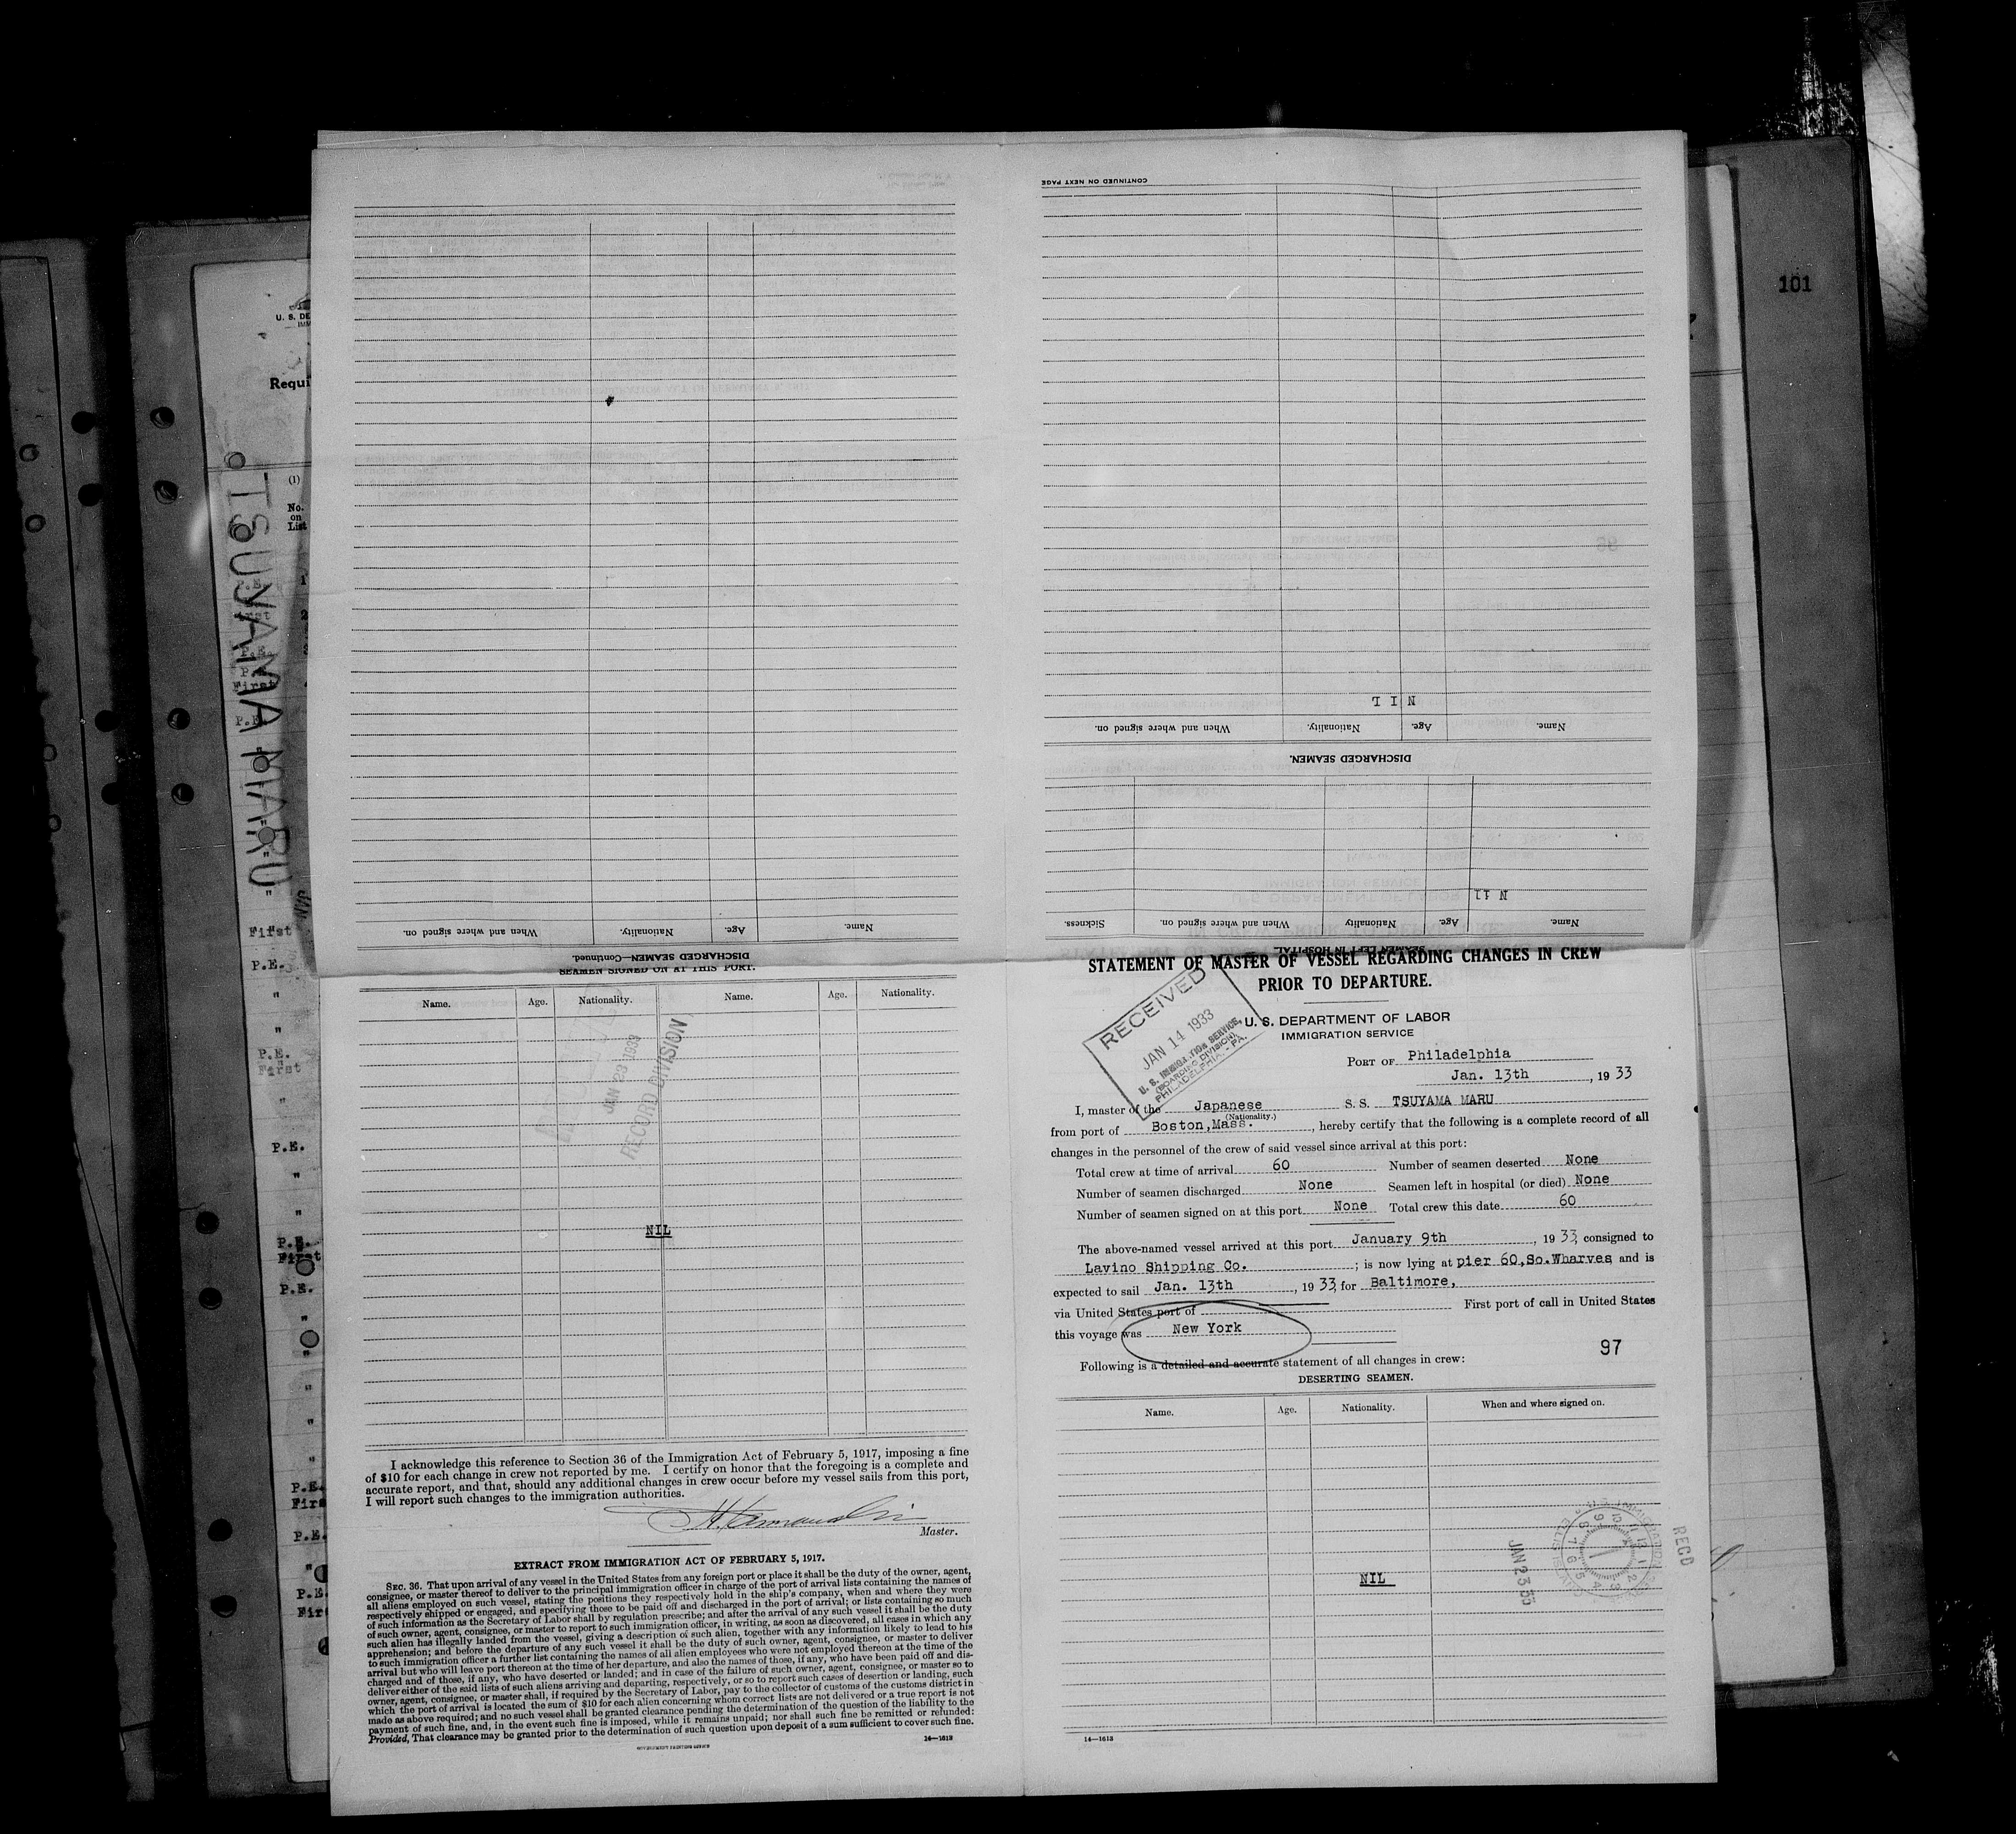 101
U. S. DE
Requi
(1)
No.
on
List
TSUYAMA MARU
CONTINUED ON NEXT PAGE
N I L
Name.
Age.
Nationality.
When and where signed on.
DISCHARGED SEAMEN.
N il
Name.
Age.
Nationality
When and where signed on.
Sickness.
SEAMEN LEFT IN HOSPITAL.
Name.
Age.
Nationality.
When and where signed on.
DISCHARGED SEAMEN—Continued.
SEAMEN SIGNED ON AT THIS PORT.
Name. Age. Nationality. Name. Age. Nationality.
JAN 23 1933
RECORD DIVISION
NIL
I acknowledge this reference to Section 36 of the Immigration Act of February 5, 1917, imposing a fine
of $10 for each change in crew not reported by me. I certify on honor that the foregoing is a complete and
accurate report, and that, should any additional changes in crew occur before my vessel sails from this port,
I will report such changes to the immigration authorities.
Master.
EXTRACT FROM IMMIGRATION ACT OF FEBRUARY 5, 1917.
SEC. 36. That upon arrival of any vessel in the United States from any foreign port or place it shall be the duty of the owner, agent,
consignee, or master thereof to deliver to the principal immigration officer in charge of the port of arrival lists containing the names of
all aliens employed on such vessel, stating the positions they respectively hold in the ship's company, when and where they were
respectively shipped or engaged, and specifying those to be paid off and discharged in the port of arrival; or lists containing so much
of such information as the Secretary of Labor shall by regulation prescribe; and after the arrival of any such vessel it shall be the duty
of such owner, agent, consignee, or master to report to such immigration officer, in writing, as soon as discovered, all cases in which any
such alien has illegally landed from the vessel, giving a description of such alien, together with any information likely to lead to his
apprehension; and before the departure of any such vessel it shall be the duty of such owner, agent, consignee, or master to deliver
to such immigration officer a further list containing the names of all alien employees who were not employed thereon at the time of the
arrival but who will leave port thereon at the time of her departure, and also the names of those, if any, who have been paid off and dis-
charged and of those, if any, who have deserted or landed; and in case of the failure of such owner, agent, consignee, or master so to
deliver either of the said lists of such aliens arriving and departing, respectively, or so to report such cases of desertion or landing, such
owner, agent, consignee, or master shall, if required by the Secretary of Labor, pay to the collector of customs of the customs district in
which the port of arrival is located the sum of $10 for each alien concerning whom correct lists are not delivered or a true report is not
made as above required; and no such vessel shall be granted clearance pending the determination of the question of the liability to the
payment of such fine, and, in the event such fine is imposed, while it remains unpaid; nor shall such fine be remitted or refunded:
Provided, That clearance may be granted prior to the determination of such question upon deposit of a sum sufficient to cover such fine.
GOVERNMENT PRINTING OFFICE
14—1613
STATEMENT OF MASTER OF VESSEL REGARDING CHANGES IN CREW
PRIOR TO DEPARTURE.
RECEIVED
JAN 14 1933
U. S. IMMIGRATION SERVICE,
(BOARDING DIVISION)
PHILADELPHIA, - PA.
U. S. DEPARTMENT OF LABOR
IMMIGRATION SERVICE
PORT OF Philadelphia
Jan. 13th, 1933
I, master of the Japanese S. S. TSUYAMA MARU
(Nationality.)
from port of Boston,Mass., hereby certify that the following is a complete record of all
changes in the personnel of the crew of said vessel since arrival at this port:
Total crew at time of arrival 60 Number of seamen deserted None
Number of seamen discharged None Seamen left in hospital (or died) None
Number of seamen signed on at this port None Total crew this date 60
The above-named vessel arrived at this port January 9th, 1933, consigned to
Lavino Shipping Co. ; is now lying at pier 60,So.Wharves and is
expected to sail Jan. 13th, 1933, for Baltimore,
via United States port of First port of call in United States
this voyage was New York
97
Following is a detailed and accurate statement of all changes in crew:
DESERTING SEAMEN.
Name. Age. Nationality. When and where signed on.
NIL
RECD
JAN 23 55
14—1613